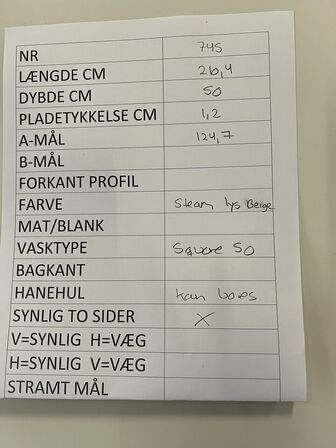 NR 745
LÆNGDE CM 216,4
DYBDE CM 50
PLADETYKKELSE CM 1,2
A-MÅL 124,7
B-MÅL
FORKANT PROFIL
FARVE Steam lys Beige
MAT/BLANK
VASKTYPE Square 50
BAGKANT
HANEHUL Kan bores
SYNLIG TO SIDER X
V=SYNLIG H=VÆG
H=SYNLIG V=VÆG
STRAMT MÅL